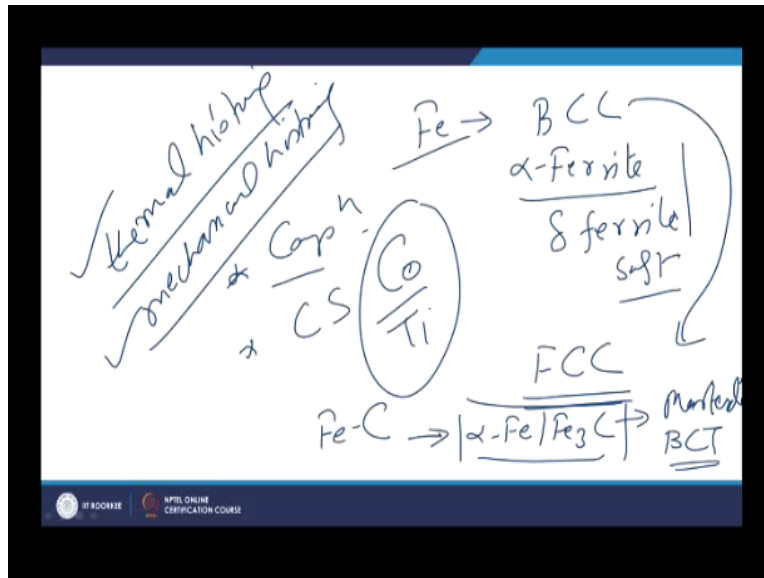 thermal history
mechanical history
* Compⁿ.
* CS
Co
Ti
Fe → BCC
α-Ferrite
δ ferrite
soft
FCC
Fe-C → |α-Fe|Fe₃C| →
BCT
IIT ROORKEE
NPTEL ONLINE
CERTIFICATION COURSE